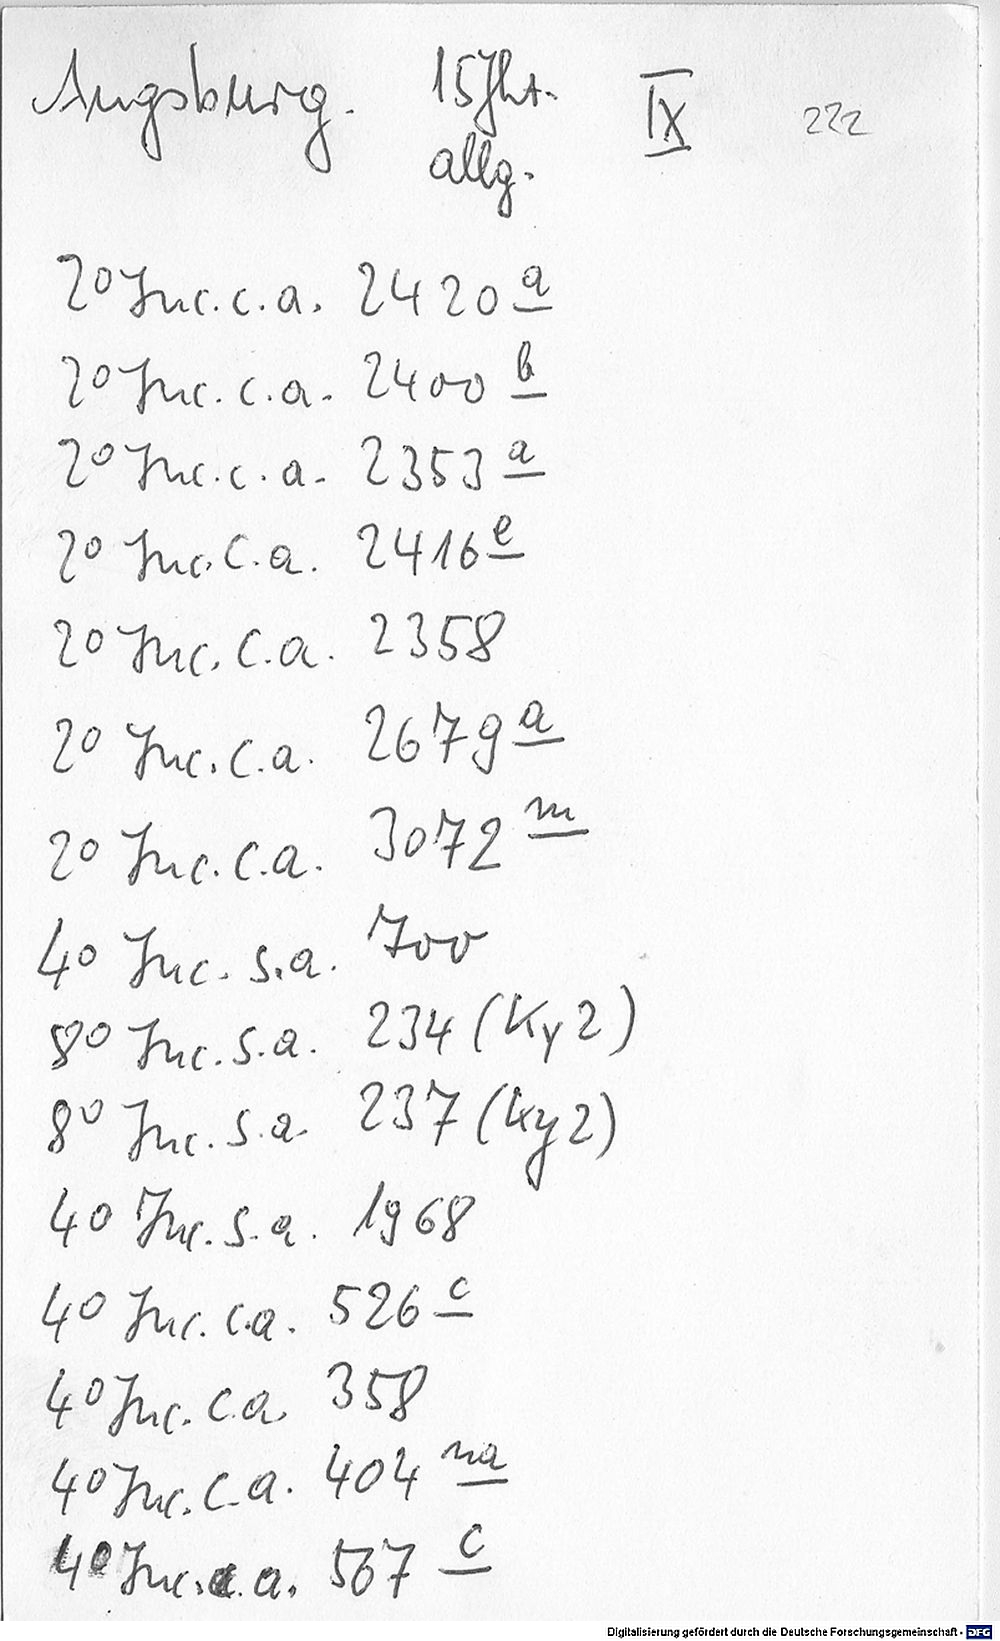 Augsburg. 15Jht. IX 222
allg.
2° Inc. c. a. 2420 a
2° Inc. c. a. 2400 b
2° Inc. c. a. 2353 a
2° Inc. c. a. 2416 e
2° Inc. c. a. 2358
2° Inc. c. a. 2679 a
2° Inc. c. a. 3072 m
4° Inc. s. a. 700
8° Inc. s. a. 234 (Ky2)
8° Inc. s. a. 237 (Ky2)
4° Inc. s. a. 1968
4° Inc. c. a. 526 c
4° Inc. c. a. 358
4° Inc. c. a. 404 na
4° Inc. c. a. 567 c
Digitalisierung gefördert durch die Deutsche Forschungsgemeinschaft - DFG